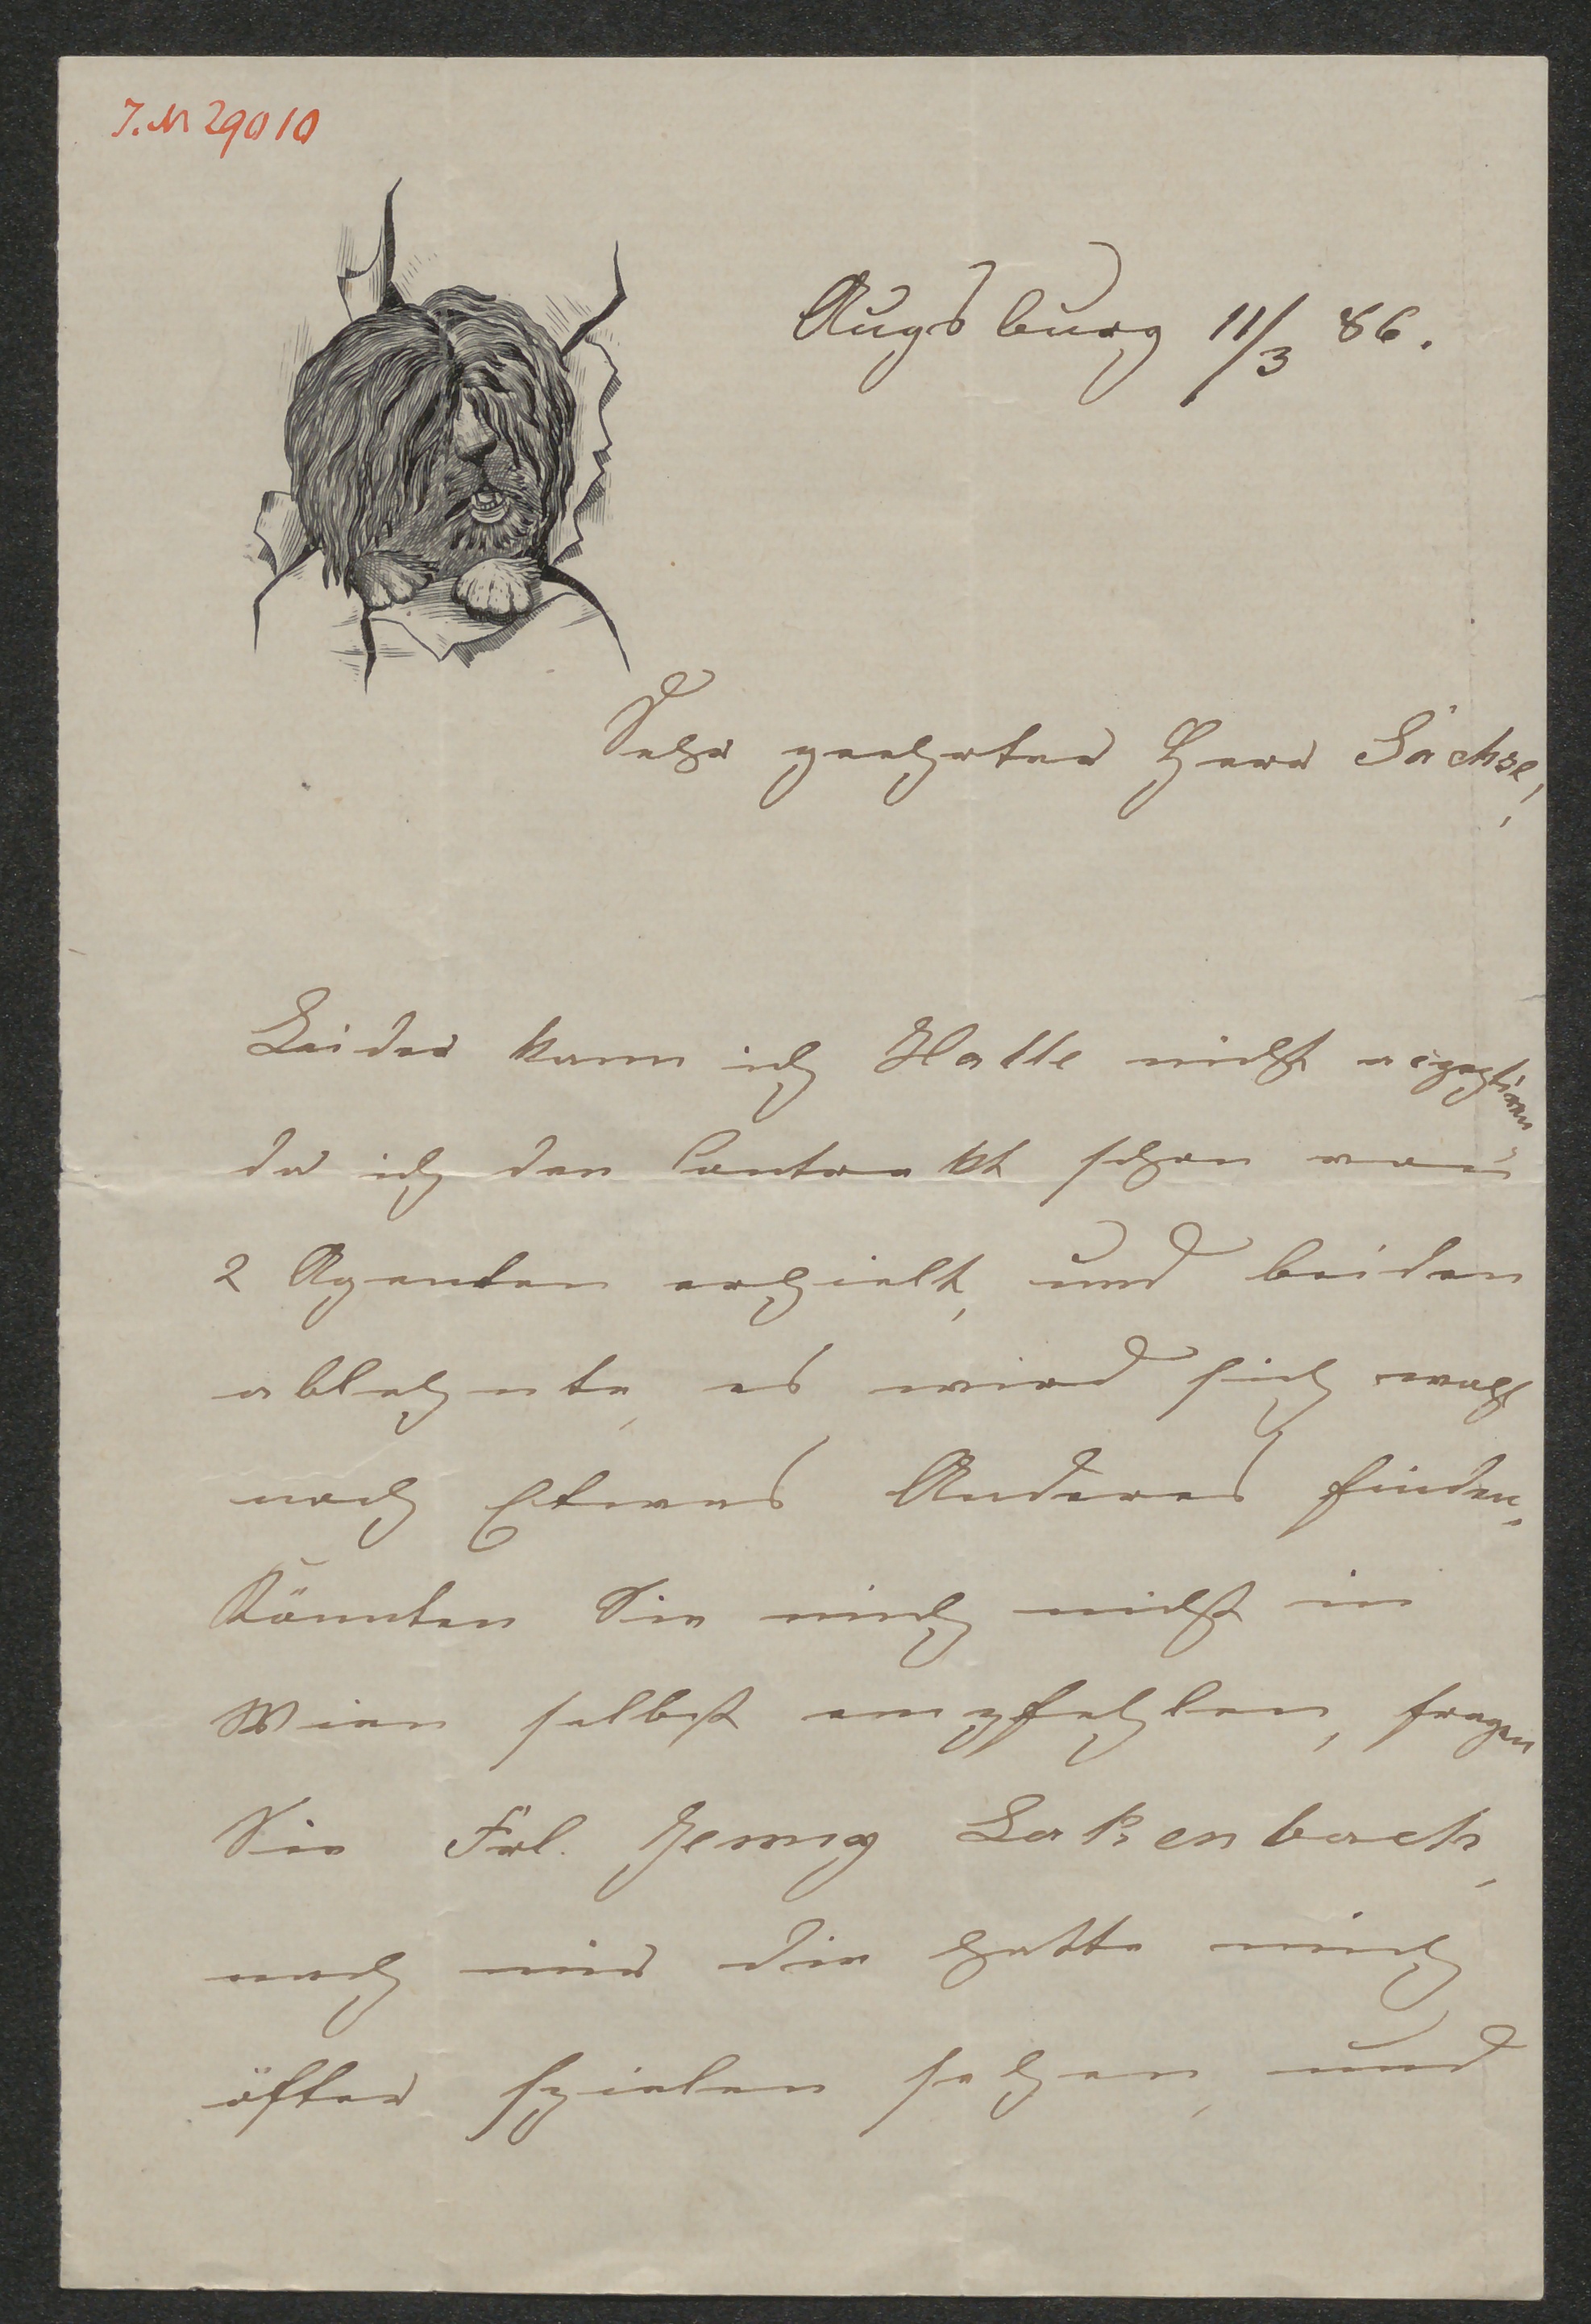 J.N 29010
Augsburg 11/3 86.
Sehr geehrter Herr Sachse!
Leider kann ich Halle nicht aczeptiren
da ich den Contrakt schon von
2 Agenten erhielt, und beiden
ablehnte, es wird sich wohl
noch Etwas Anderes finden.
Könnten Sie mich nicht in
Wien selbst empfehlen, fragen
Sie Frl. Jenny Lakenbach,
nach mir die hatte mich
öfter spielen sehen, und